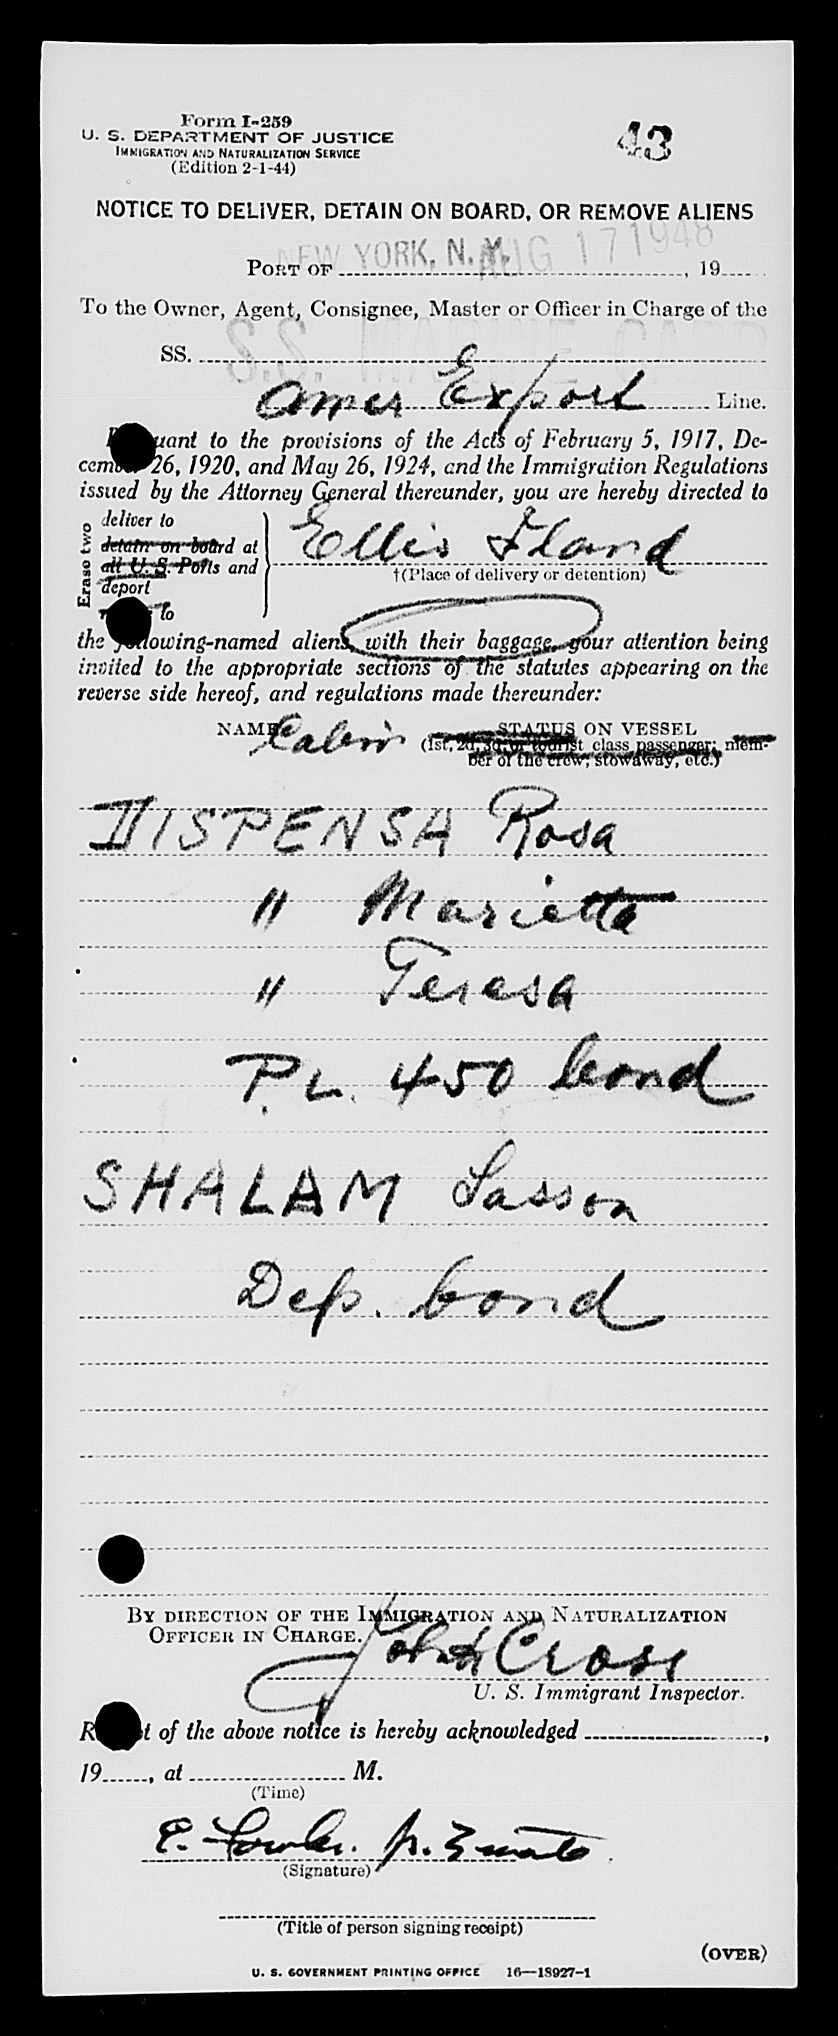 Form I-259
U. S. DEPARTMENT OF JUSTICE
IMMIGRATION AND NATURALIZATION SERVICE
(Edition 2-1-44)
43
NOTICE TO DELIVER, DETAIN ON BOARD, OR REMOVE ALIENS
NEW YORK, N. Y. AUG 17 1948
PORT OF , 19
To the Owner, Agent, Consignee, Master or Officer in Charge of the
SS. S.S. MARINE CARP
Amer Export Line.
uant to the provisions of the Acts of February 5, 1917, De-
cember 26, 1920, and May 26, 1924, and the Immigration Regulations
issued by the Attorney General thereunder, you are hereby directed to
Erase two
deliver to
detain on board at
all U. S. Ports and
deport
to
Ellis Iland
†(Place of delivery or detention)
the following-named aliens, with their baggage, your attention being
invited to the appropriate sections of the statutes appearing on the
reverse side hereof, and regulations made thereunder:
NAME Cabin STATUS ON VESSEL
(1st, 2d, 3d, or tourist class passenger; mem-
ber of the crew; stowaway, etc.)
DISPENSA Rosa
" Marietta
" Teresa
P.L. 450 bond
SHALAM Sasson
Dep. bond
BY DIRECTION OF THE IMMIGRATION AND NATURALIZATION
OFFICER IN CHARGE.
John Cross
U. S. Immigrant Inspector.
R t of the above notice is hereby acknowledged ,
19 , at M.
(Time)
E. Fowler.
(Signature)
(Title of person signing receipt)
(OVER)
U. S. GOVERNMENT PRINTING OFFICE 16—18927-1